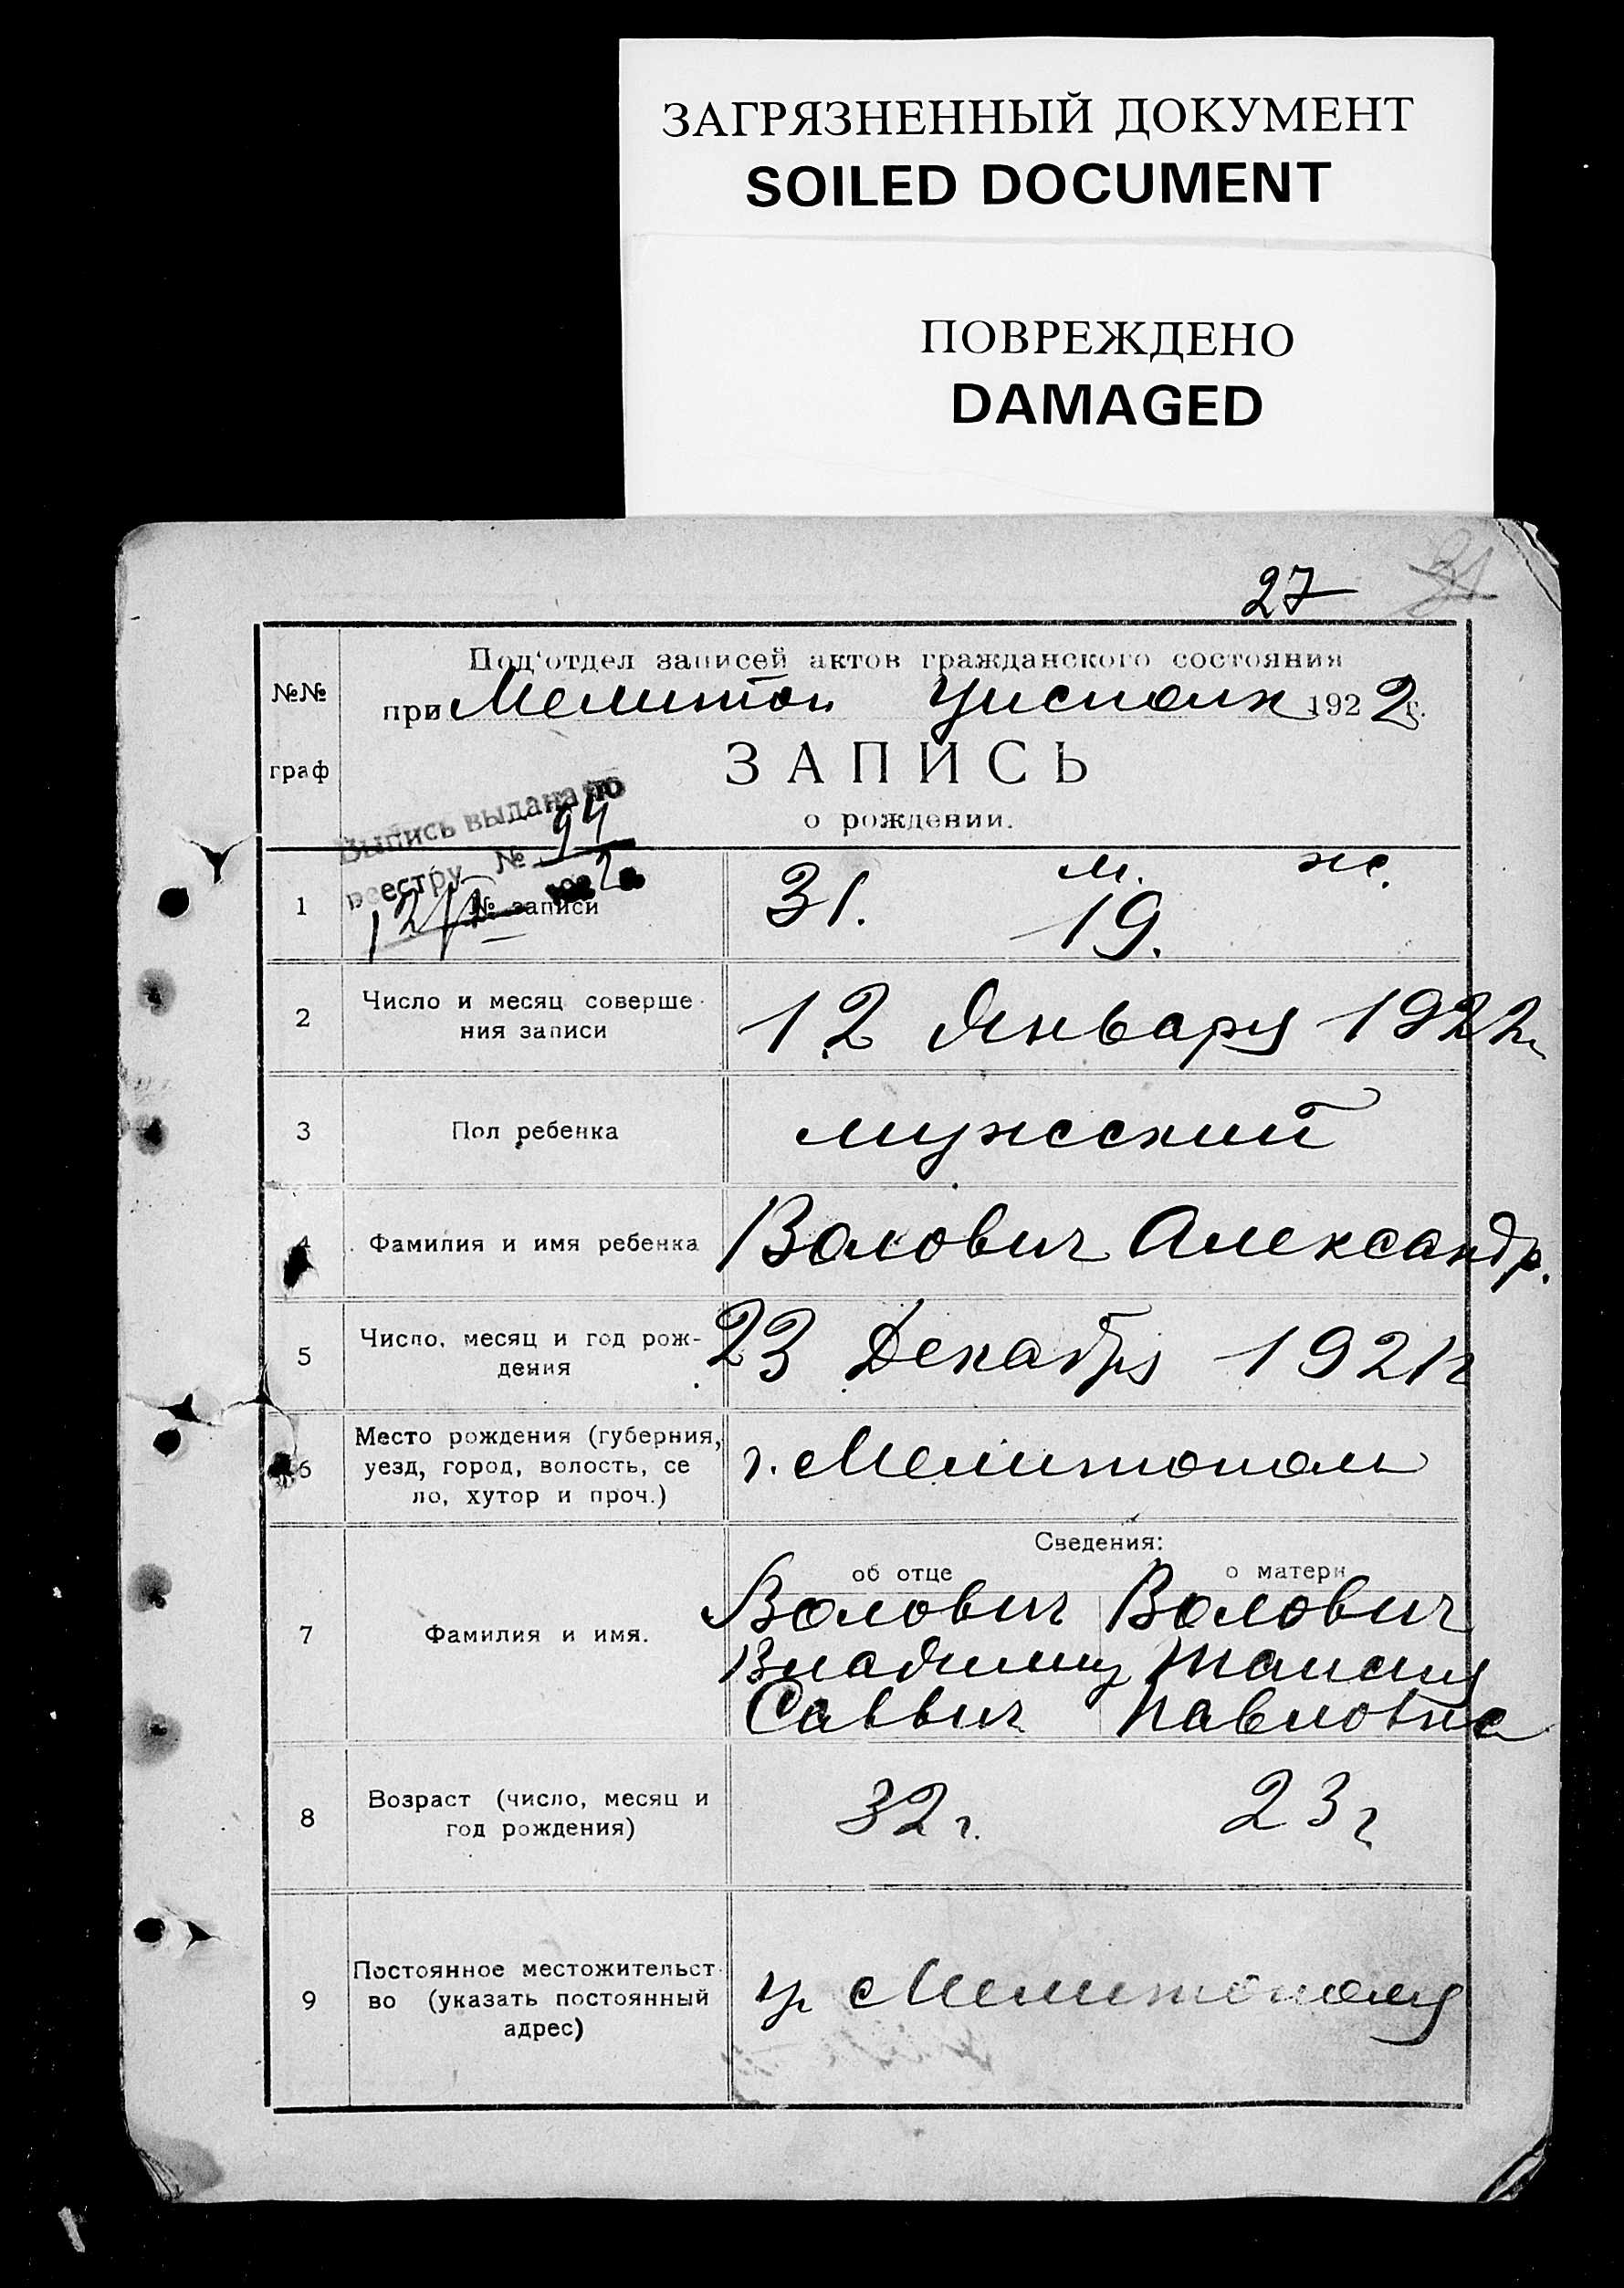 ЗАГРЯЗНЕННЫЙ ДОКУМЕНТ
SOILED DOCUMENT
ПОВРЕЖДЕНО
DAMAGED
27
Под'отдел записей актов гражданского состояния
№№ при Мелитоп Уисполк 1922 г.
граф ЗАПИСЬ
о рождении.
Выпись выдана по
реестру № 94
м. ж.
1 № записи 31. 19.
2 Число и месяц соверше-
ния записи 12 Января 1922 г.
3 Пол ребенка мужский
4 Фамилия и имя ребенка Волович Александр.
5 Число, месяц и год рож-
дения 23 Декабря 1921 г
6 Место рождения (губерния,
уезд, город, волость, се
ло, хутор и проч.) г. Мелитополь
Сведения:
об отце о матери
Волович Волович
7 Фамилия и имя. Владимир Таисия
Саввич Павловна
8 Возраст (число, месяц и
год рождения) 32 г. 23 г.
9 Постоянное местожительст-
во (указать постоянный
адрес) гр. Мелитополя